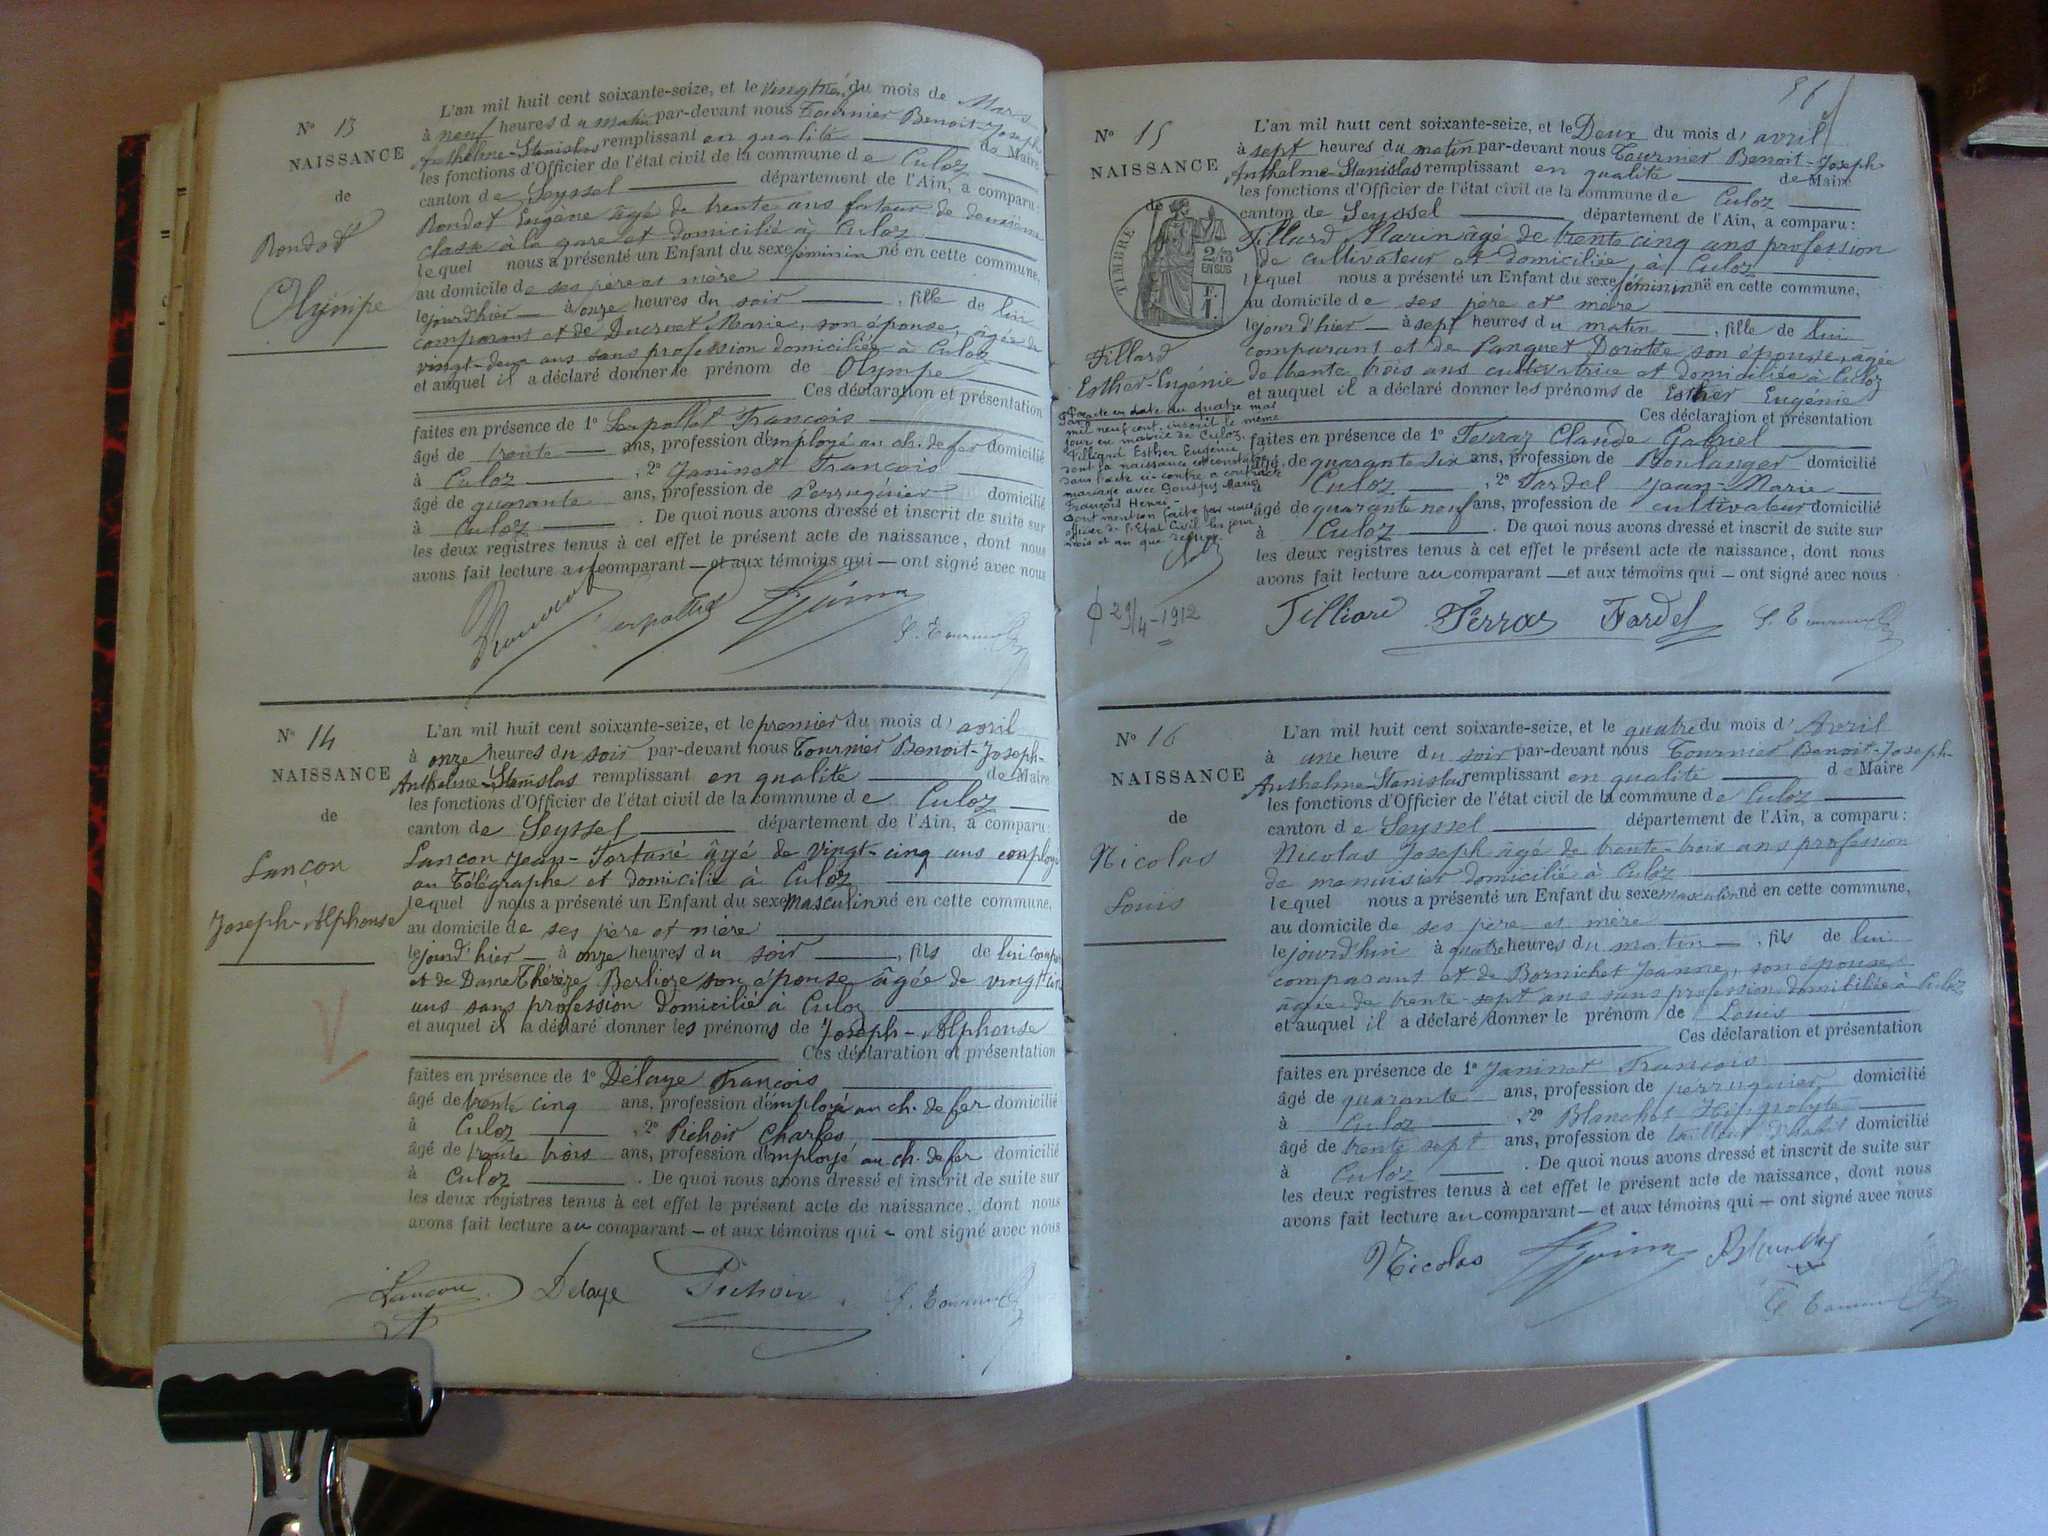 N° 13
NAISSANCE
de
Rondot
Olympe
L'an mil huit cent soixante-seize, et le du mois de Mars
à neuf heures du matin par-devant nous Tournier Benoit-Joseph
Anthelme-Stanislas remplissant en qualité de Maire
les fonctions d'Officier de l'état civil de la commune de Culoz
canton de Seyssel département de l'Ain, a comparu:
Rondot Eugène âgé de trente ans facteur de deuxième
classe à la gare et domicilié à Culoz
lequel nous a présenté un Enfant du sexe féminin né en cette commune,
au domicile de ses père et mère
le jour d'hier à onze heures du soir , fille de lui
comparant et de Ducruet Marie, son épouse, âgée de
vingt-deux ans sans profession domiciliée à Culoz
et auquel il a déclaré donner le prénom de Olympe
Ces déclaration et présentation
faites en présence de 1° Serpollet François
âgé de trente ans, profession d'employé au ch. de fer domicilié
à Culoz , 2° Janinet François
âgé de quarante ans, profession de perruquier domicilié
à Culoz . De quoi nous avons dressé et inscrit de suite sur
les deux registres tenus à cet effet le présent acte de naissance, dont nous
avons fait lecture au comparant — et aux témoins qui — ont signé avec nous
N° 14
NAISSANCE
de
Lançon
Joseph-Alphonse
L'an mil huit cent soixante-seize, et le premier du mois d'avril
à onze heures du soir par-devant nous Tournier Benoit-Joseph-
Anthelme-Stanislas remplissant en qualité de Maire
les fonctions d'Officier de l'état civil de la commune de Culoz
canton de Seyssel département de l'Ain, a comparu:
Lançon Jean-Fortuné âgé de vingt-cinq ans employé
au Télégraphe et domicilié à Culoz
lequel nous a présenté un Enfant du sexe masculin né en cette commune,
au domicile de ses père et mère
le jour d'hier — à onze heures du soir , fils de lui
et de Dame Thérèse Berlioz son épouse âgée de
ans sans profession domicilié à Culoz
et auquel il a déclaré donner les prénoms de Joseph-Alphonse
Ces déclaration et présentation
faites en présence de 1° Délaye François
âgé de trente cinq ans, profession d'employé au ch. de fer domicilié
à Culoz , 2° Pichoir Charles
âgé de trente trois ans, profession d'employé au ch. de fer domicilié
à Culoz . De quoi nous avons dressé et inscrit de suite sur
les deux registres tenus à cet effet le présent acte de naissance, dont nous
avons fait lecture au comparant — et aux témoins qui — ont signé avec nous
Lançon Delaye Pichoir
N° 15
NAISSANCE
de
TIMBRE
2/10
EN SUS
F.
1.
Filliard
Esther-Eugénie
Par acte en date du quatre mai
mil neuf cent, inscrit le même
jour en mairie de Culoz,
Filliard Esther Eugénie
dont la naissance est constatée
dans l'acte ci-contre a contracté
mariage avec
François Henri -
Dont mention faite par nous
officier de l'Etat Civil les jour
mois et an que dessus.
29/4-1912
51
L'an mil huit cent soixante-seize, et le Deux du mois d'avril
à sept heures du matin par-devant nous Tournier Benoit-Joseph-
Anthelme-Stanislas remplissant en qualité de Maire
les fonctions d'Officier de l'état civil de la commune de Culoz
canton de Seyssel département de l'Ain, a comparu:
Filliard Marin âgé de trente cinq ans profession
de cultivateur et domiciliée à Culoz
lequel nous a présenté un Enfant du sexe féminin né en cette commune,
au domicile de ses père et mère
le jour d'hier — à sept heures du matin — , fille de lui
comparant et de Panguet Dorotée son épouse, âgée
de trente trois ans cultivatrice et domiciliée à Culoz
et auquel il a déclaré donner les prénoms de Esther Eugénie
Ces déclaration et présentation
faites en présence de 1° Ferraz Claude Gabriel
âgé de quarante six ans, profession de Boulanger domicilié
à Culoz , 2° Fardel Jean-Marie
âgé de quarante neuf ans, profession de cultivateur domicilié
à Culoz . De quoi nous avons dressé et inscrit de suite sur
les deux registres tenus à cet effet le présent acte de naissance, dont nous
avons fait lecture au comparant — et aux témoins qui — ont signé avec nous
Filliard Ferraz Fardel
N° 16
NAISSANCE
de
Nicolas
Louis
L'an mil huit cent soixante-seize, et le quatre du mois d'Avril
à une heure du soir par-devant nous Tournier Benoit-Joseph-
Anthelme-Stanislas remplissant en qualité de Maire
les fonctions d'Officier de l'état civil de la commune de Culoz
canton de Seyssel département de l'Ain, a comparu:
Nicolas Joseph âgé de trente-trois ans profession
de menuisier domicilié à Culoz
lequel nous a présenté un Enfant du sexe masculin né en cette commune,
au domicile de ses père et mère
le jourd'hui à quatre heures du matin — , fils de lui
comparant et de Bornichet Jeanne, son épouse
âgée de trente-sept ans sans profession domiciliée à Culoz
et auquel il a déclaré donner le prénom de Louis
Ces déclaration et présentation
faites en présence de 1° Janinet François
âgé de quarante ans, profession de perruquier domicilié
à Culoz , 2° Blanchet Hippolyte
âgé de trente sept ans, profession de domicilié
à Culoz . De quoi nous avons dressé et inscrit de suite sur
les deux registres tenus à cet effet le présent acte de naissance, dont nous
avons fait lecture au comparant — et aux témoins qui — ont signé avec nous
Nicolas